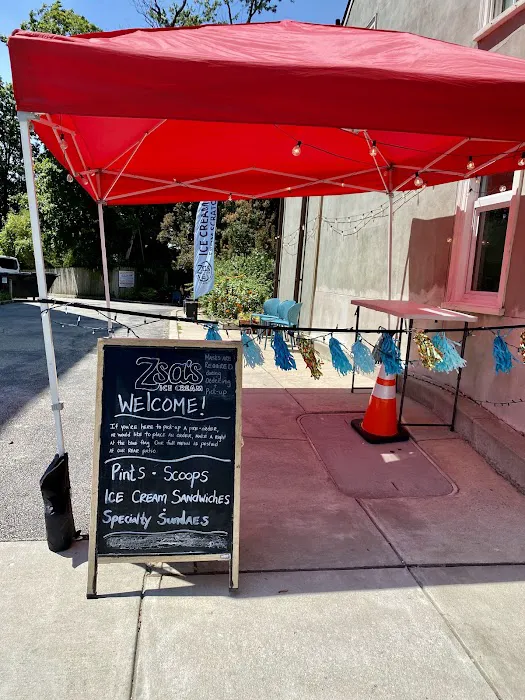 ICE CREAM
Zsa's
ICE CREAM
MASKS ARE
REQUIRED
during
ordering
&
Pick-up
WELCOME!
If you're here to pick-up a pre-order,
or would like to place an order, make a right
at the blue flag. Our full menu is posted
at our rear patio.
Pints - Scoops
ICE CREAM SANDWICHES
Specialty Sundaes